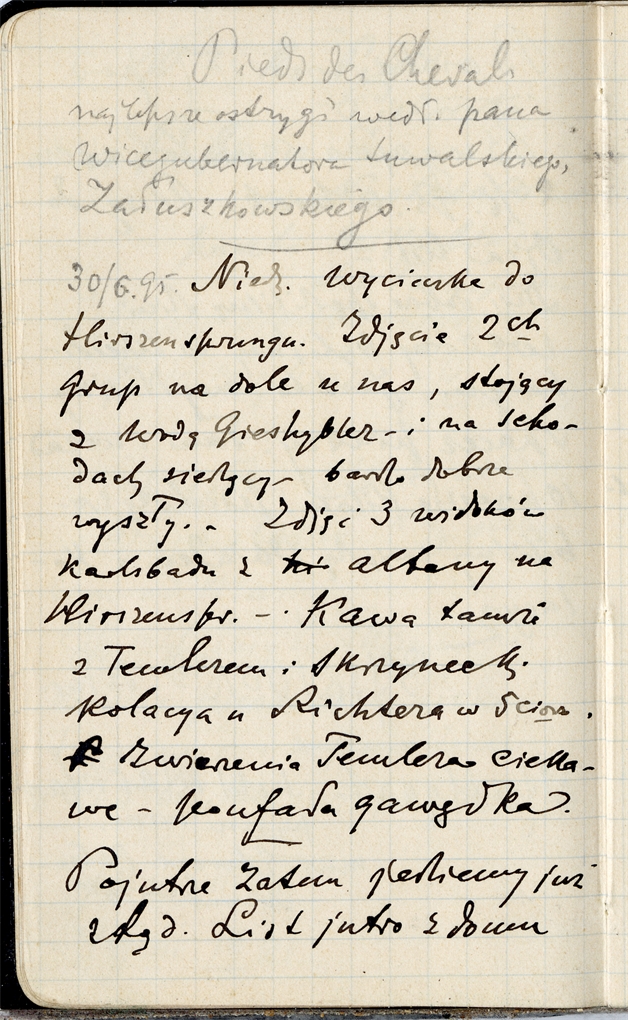 Pieds des Cheval
najlepsze ostrygi wedł. pana
Wicegubernatora Suwalskiego,
Załuszkowskiego.
30/6.95. Niedz. Wycieczka do
Hirszensprungu. Zdjęcie 2ch
Grup na dole u nas, stojący
z wodą Gieshybler - i na scho-
dach siedzący - bardo dobrze
wyszły. - Zdjęć 3 widoków
Karlsbadu z altany na
Hirszenspr. - . Kawa tamże
z Temlerem i Skrzyneck.
Kolacya u Richtera w 5cioro.
Zwierzenia Temlera cieka-
we - poufała gawędka.
Pojutrze zatem jedziemy już
ztąd. List jutro z domu